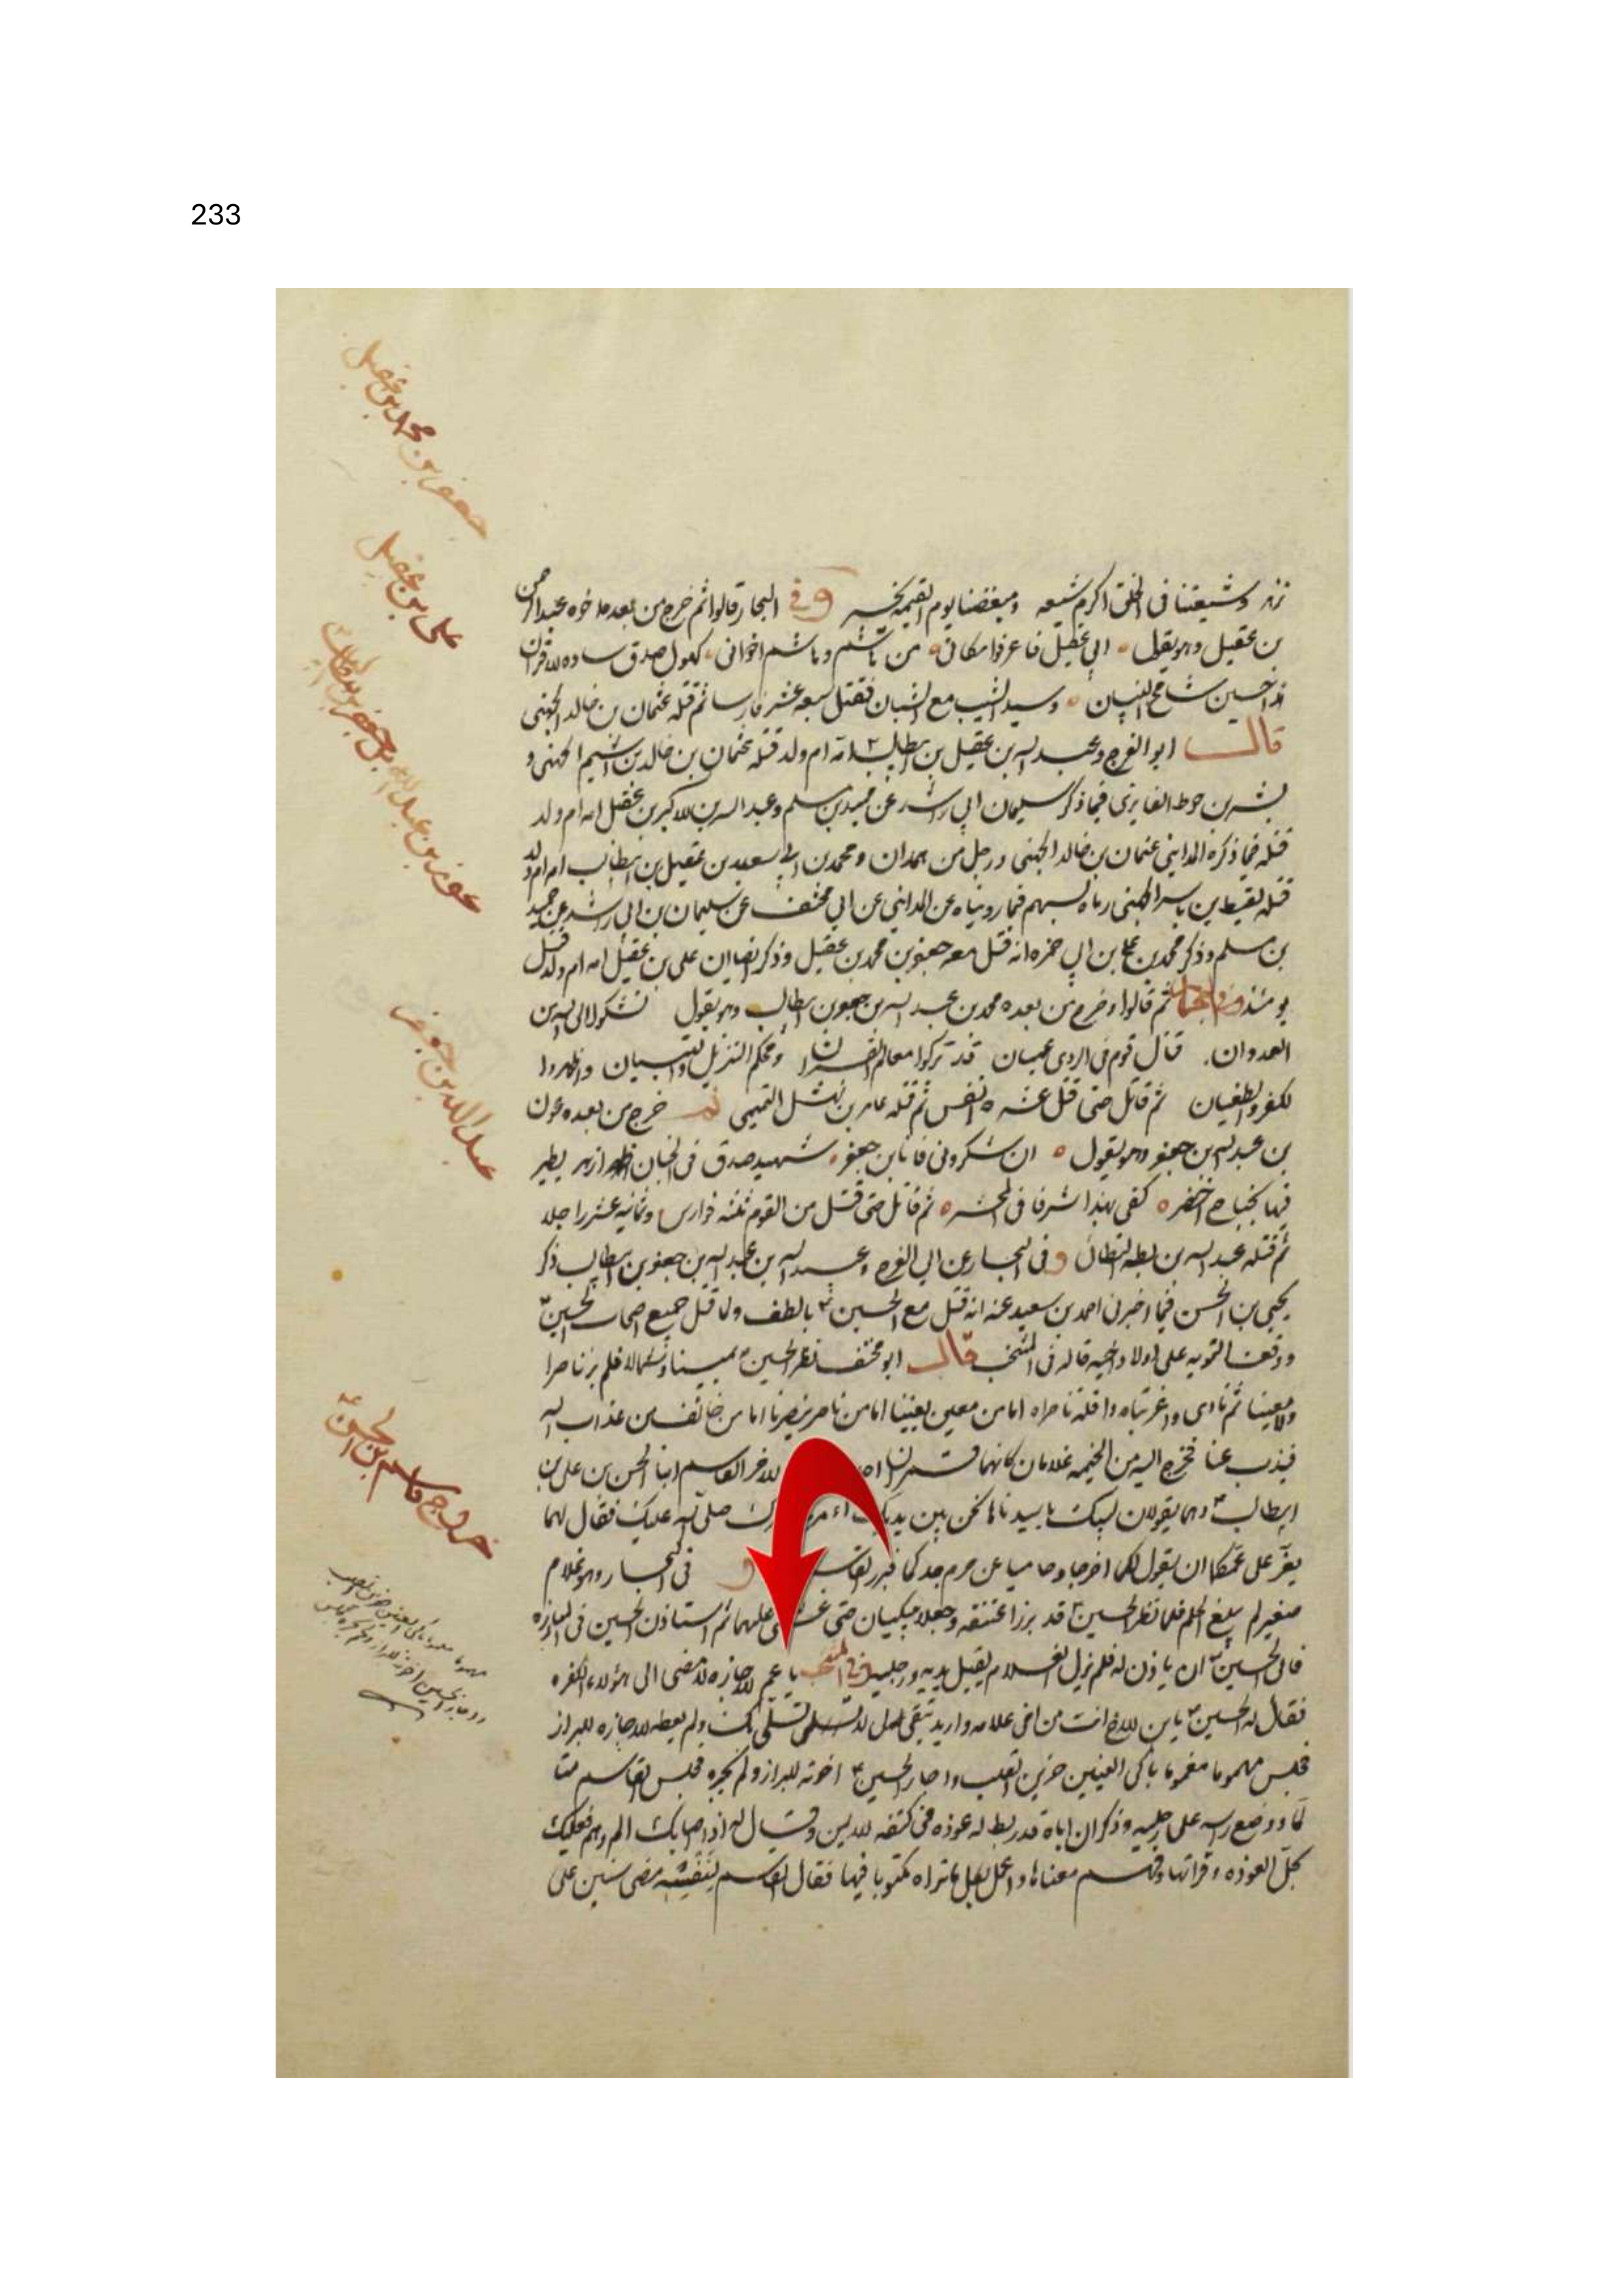 233
جعفر بن محمد بن عقيل
علی بن عقيل
عون بن عبد الله بن جعفر
عبد الله بن جعفر
خروج قاسم بن الحسن ع
وشيعتنا فی الخلق اكرم شيعه ومبغضنا يوم القيمه يخسر وفی البحار قالوا ثم خرج من بعده اخوه عبد الرحمن
بن عقيل وهو يقول ابی عقيل فاعرفوا مكانی من هاشم وهاشم اخوانی كهول صدق ساده الاقران
هذا حسين شامخ البنيان وسيد الشيب مع الشبان فقتل سبعه عشر فارسا ثم قتله عثمان بن خالد الجهنی
قال ابو الفرج وعبد الله بن عقيل بن ابيطالب ع امه ام ولد قتله عثمان بن خالد بن اشيم الجهنی و
بشر بن حوط القايضی فيما ذكر سليمان ابی راشد عن حميد بن مسلم وعبد الله بن الاكبر بن عقيل امه ام ولد
قتله فيما ذكره المداينی عثمان بن خالد الجهنی ورجل من همدان ومحمد بن ابی سعيد بن عقيل بن ابيطالب امه ام ولد
قتله لقيط بن ياسر الجهنی رماه بسهم فيما رويناه عن المداينی عن ابی مخنف عن سليمان بن ابی راشد عن حميد
بن مسلم وذكر محمد بن علی بن ابی حمزه انه قتل معه جعفر بن محمد بن عقيل وذكر ايضا ان علی بن عقيل امه ام ولد قتل
يومئذ وفی البحار ثم قالوا وخرج من بعده محمد بن عبد الله بن جعفر بن ابيطالب وهو يقول نشكو الی الله من
العدوان قتال قوم فی الردی عميان قد تركوا معالم القران ومحكم التنزيل والتبيان واظهروا
الكفر والطغيان ثم قاتل حتی قتل عشره انفس ثم قتله عامر بن نهشل التميمی ثم خرج من بعده عون
بن عبد الله بن جعفر وهو يقول ان تنكرونی فانا بن جعفر شهيد صدق فی الجنان ازهر يطير
فيها بجناح اخضر كفی بهذا شرفا فی المحشر ثم قاتل حتی قتل من القوم ثلثه فوارس وثمانيه عشر راجلا
ثم قتله عبد الله بن بطه الطائی وفی البحار عن ابی الفرج وعبيد الله بن عبد الله بن جعفر بن ابيطالب ذكر
يحيی بن الحسن فيما اخبرنی احمد بن سعيد عنه انه قتل مع الحسين ع بالطف ولما قتل جميع اصحاب الحسين ع
ووقعت النوبه علی اولاد اخيه قاله فی المنتخب قال ابو مخنف نظر الحسين ع يمينا وشمالا فلم ير ناصرا
ولا معينا ثم نادی واغربتاه واقله ناصراه اما من معين يعيننا اما من ناصر ينصرنا اما من خائف من عذاب الله
فيذب عنا فخرج اليه من الخيمه غلامان كانهما قمران الاخر القاسم ابنا الحسن بن علی بن
ابيطالب ع وهما يقولان لبيك يا سيدنا ها نحن بين يديك صلی الله عليك فقال لهما
يعز علی عمكما ان يقول لكما اخرجا وحاميا عن حرم جدكما فبرز القاسم و فی البحار وهو غلام
صغير لم يبلغ الحلم فلما نظر الحسين ع قد برز اعتنقه وجعلا يبكيان حتی غشی عليهما ثم استاذن الحسين فی المبارزه
فابی الحسين ع ان ياذن له فلم يزل الغلام يقبل يديه ورجليه وفی المنتخب يا عم الاجازه لامضی الی هؤلاء الكفره
فقال له الحسين ع يا بن الاخ انت من اخی علامه واريد تبقی لی لاتسلی بك ولم يعطه الاجازه للبراز
فجلس مهموما مغموما باكی العينين حزين القلب واجاز الحسين ع اخوته للبراز ولم يجزه فجلس القاسم متا
لما ووضع راسه علی رجليه وذكر ان اباه قد ربط له عوذه فی كتفه الايمن وقال له اذا اصابك الم وهم فعليك
بحل العوذه وقرائتها وفهم معناها واعمل بكل ما تراه مكتوبا فيها فقال القاسم لنفسه مضی سنين علی